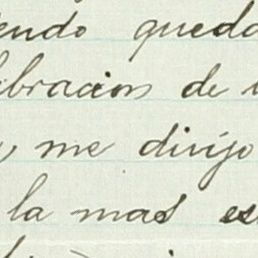 endo queda
lebracion de
me dirijo
la mas es